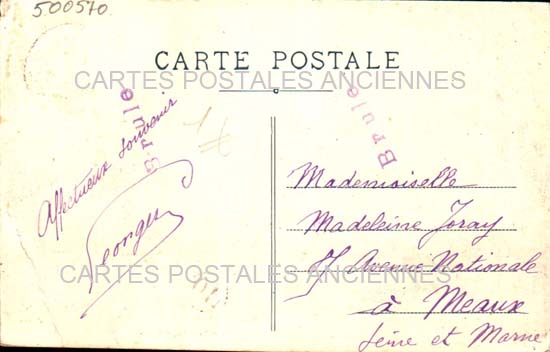 500570
CARTE POSTALE
CARTES POSTALES ANCIENNES
Brulé
Brulé
Affectueux souvenir
Georges
Mademoiselle
Madeleine Joray
Avenue Nationale
CARTES POSTALES ANCIENNES
à Meaux
Seine et Marne